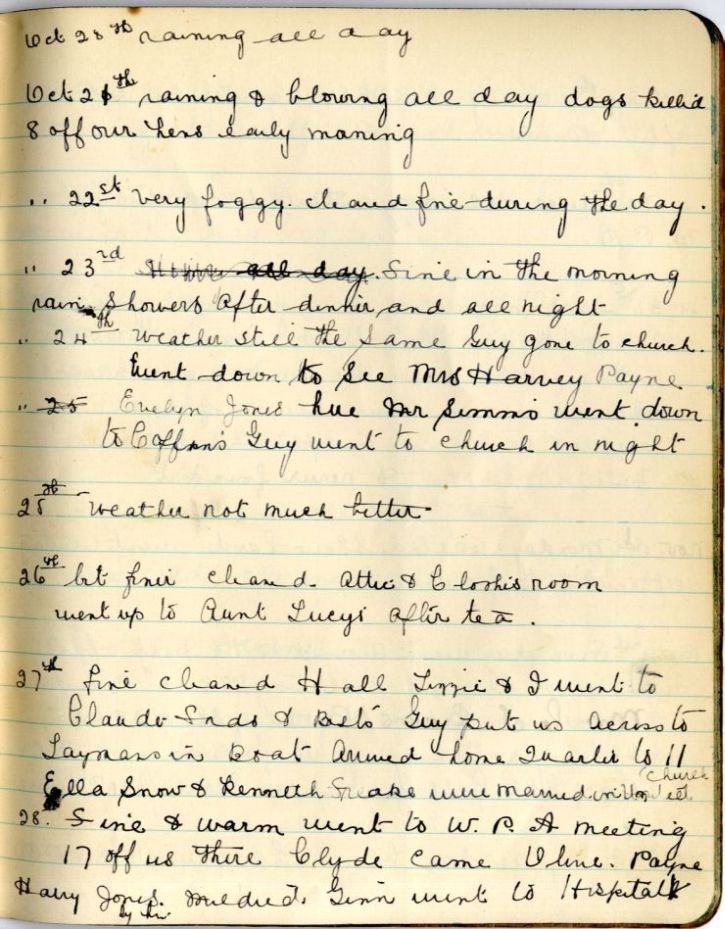 Oct 20th raining all day
Oct 21th raining & blowing all day dogs killid
8 off our hens early morning
" 22st Very foggy. cleared fine during the day.
" 23rd all day. Fine in the morning
rain showers after dinner and all night
" 24th weather still the same Guy gone to church.
Went down to See Mrs Harvey Payne
" 25 Evelyn Jones here Mr Simms went down
to Coffins Guy went to church in night
25th weather not much better
26th bit finer cleaned Attic & Clothis room
went up to Aunt Lucys after tea.
27th fine cleaned Hall Lizzie & I went to
Claude & Guy put us across to
Laymans in Boat Arrived home Quarter to 11
church
Ella Snow & Kenneth were married in
28. Fine & warm went to W. P. A meeting
17 off us there Clyde came Olive. Payne
Harry Jones. Mildred. Ginn went to Hospital